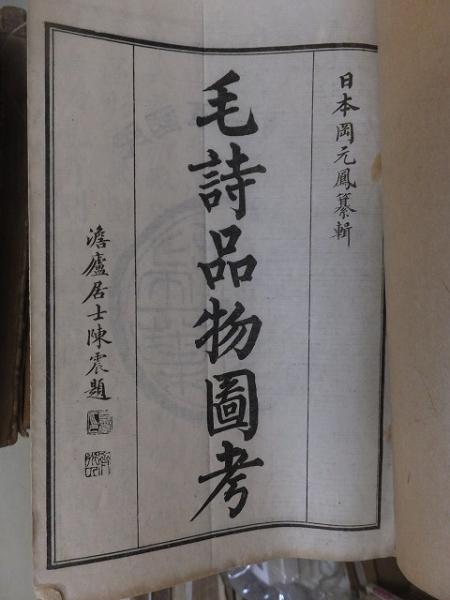 日本岡元鳳纂輯
毛詩品物圖考
澹廬居士陳震題